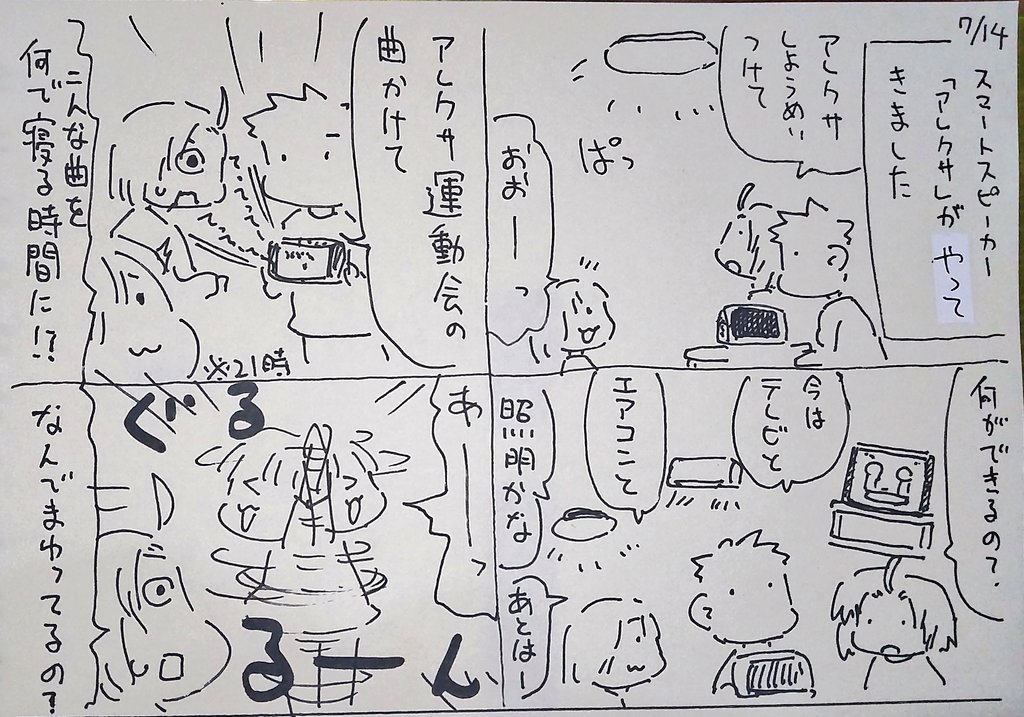 7/14
スマートスピーカー
「アレクサ」が やって
きました
アレクサ
しょうめい
つけて
ぱっ
おおーっ
何ができるの?
今は
テレビと
エアコンと
照明かな
あとはー
アレクサ 運動会の
曲かけて
てってってってー
こんな曲を
何で寝る時間に!?
※21時
あーーー
ぐるるーん
なんでまわってるの?